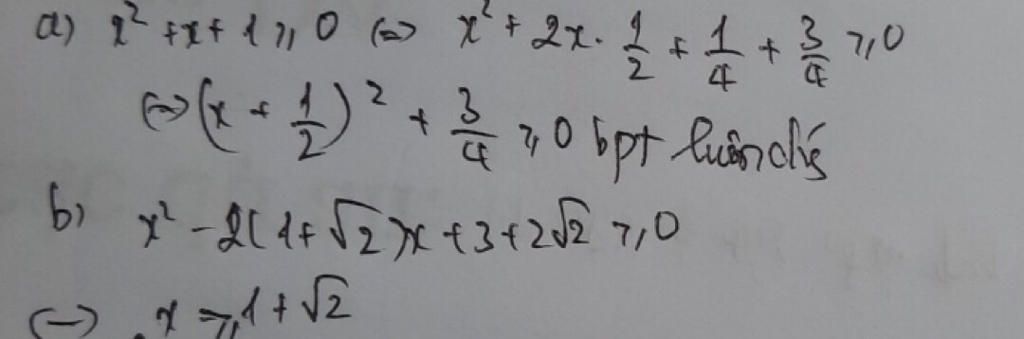 a) x² + x + 1 ≥ 0 ⇔ x² + 2x . 1/2 + 1/4 + 3/4 ≥ 0
⇔ (x + 1/2)² + 3/4 ≥ 0 bpt luôn đ's
b) x² - 2(1+√2)x + 3 + 2√2 ≥ 0
⇔ x ≥ 1 + √2